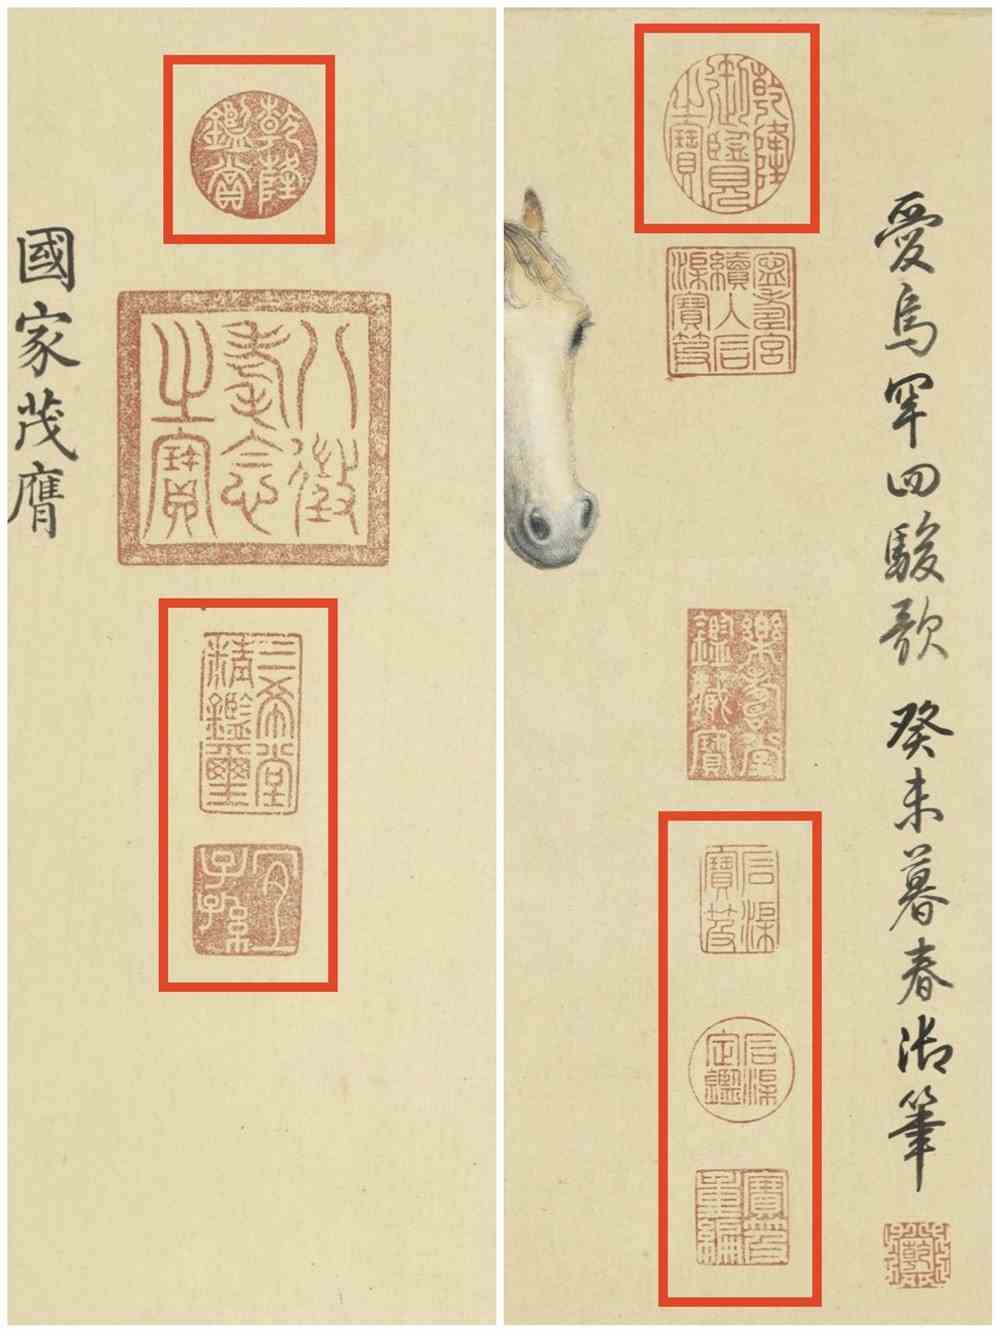 國家茂膺
乾隆鑑賞
八徵耄念之寶
三希堂精鑑璽
宜子孫
愛烏罕四駿歌 癸未暮春御筆
乾隆御覽之寶
寧壽宮續入石渠寶笈
樂壽堂鑑藏寶
石渠寶笈
石渠定鑑
寶笈重編